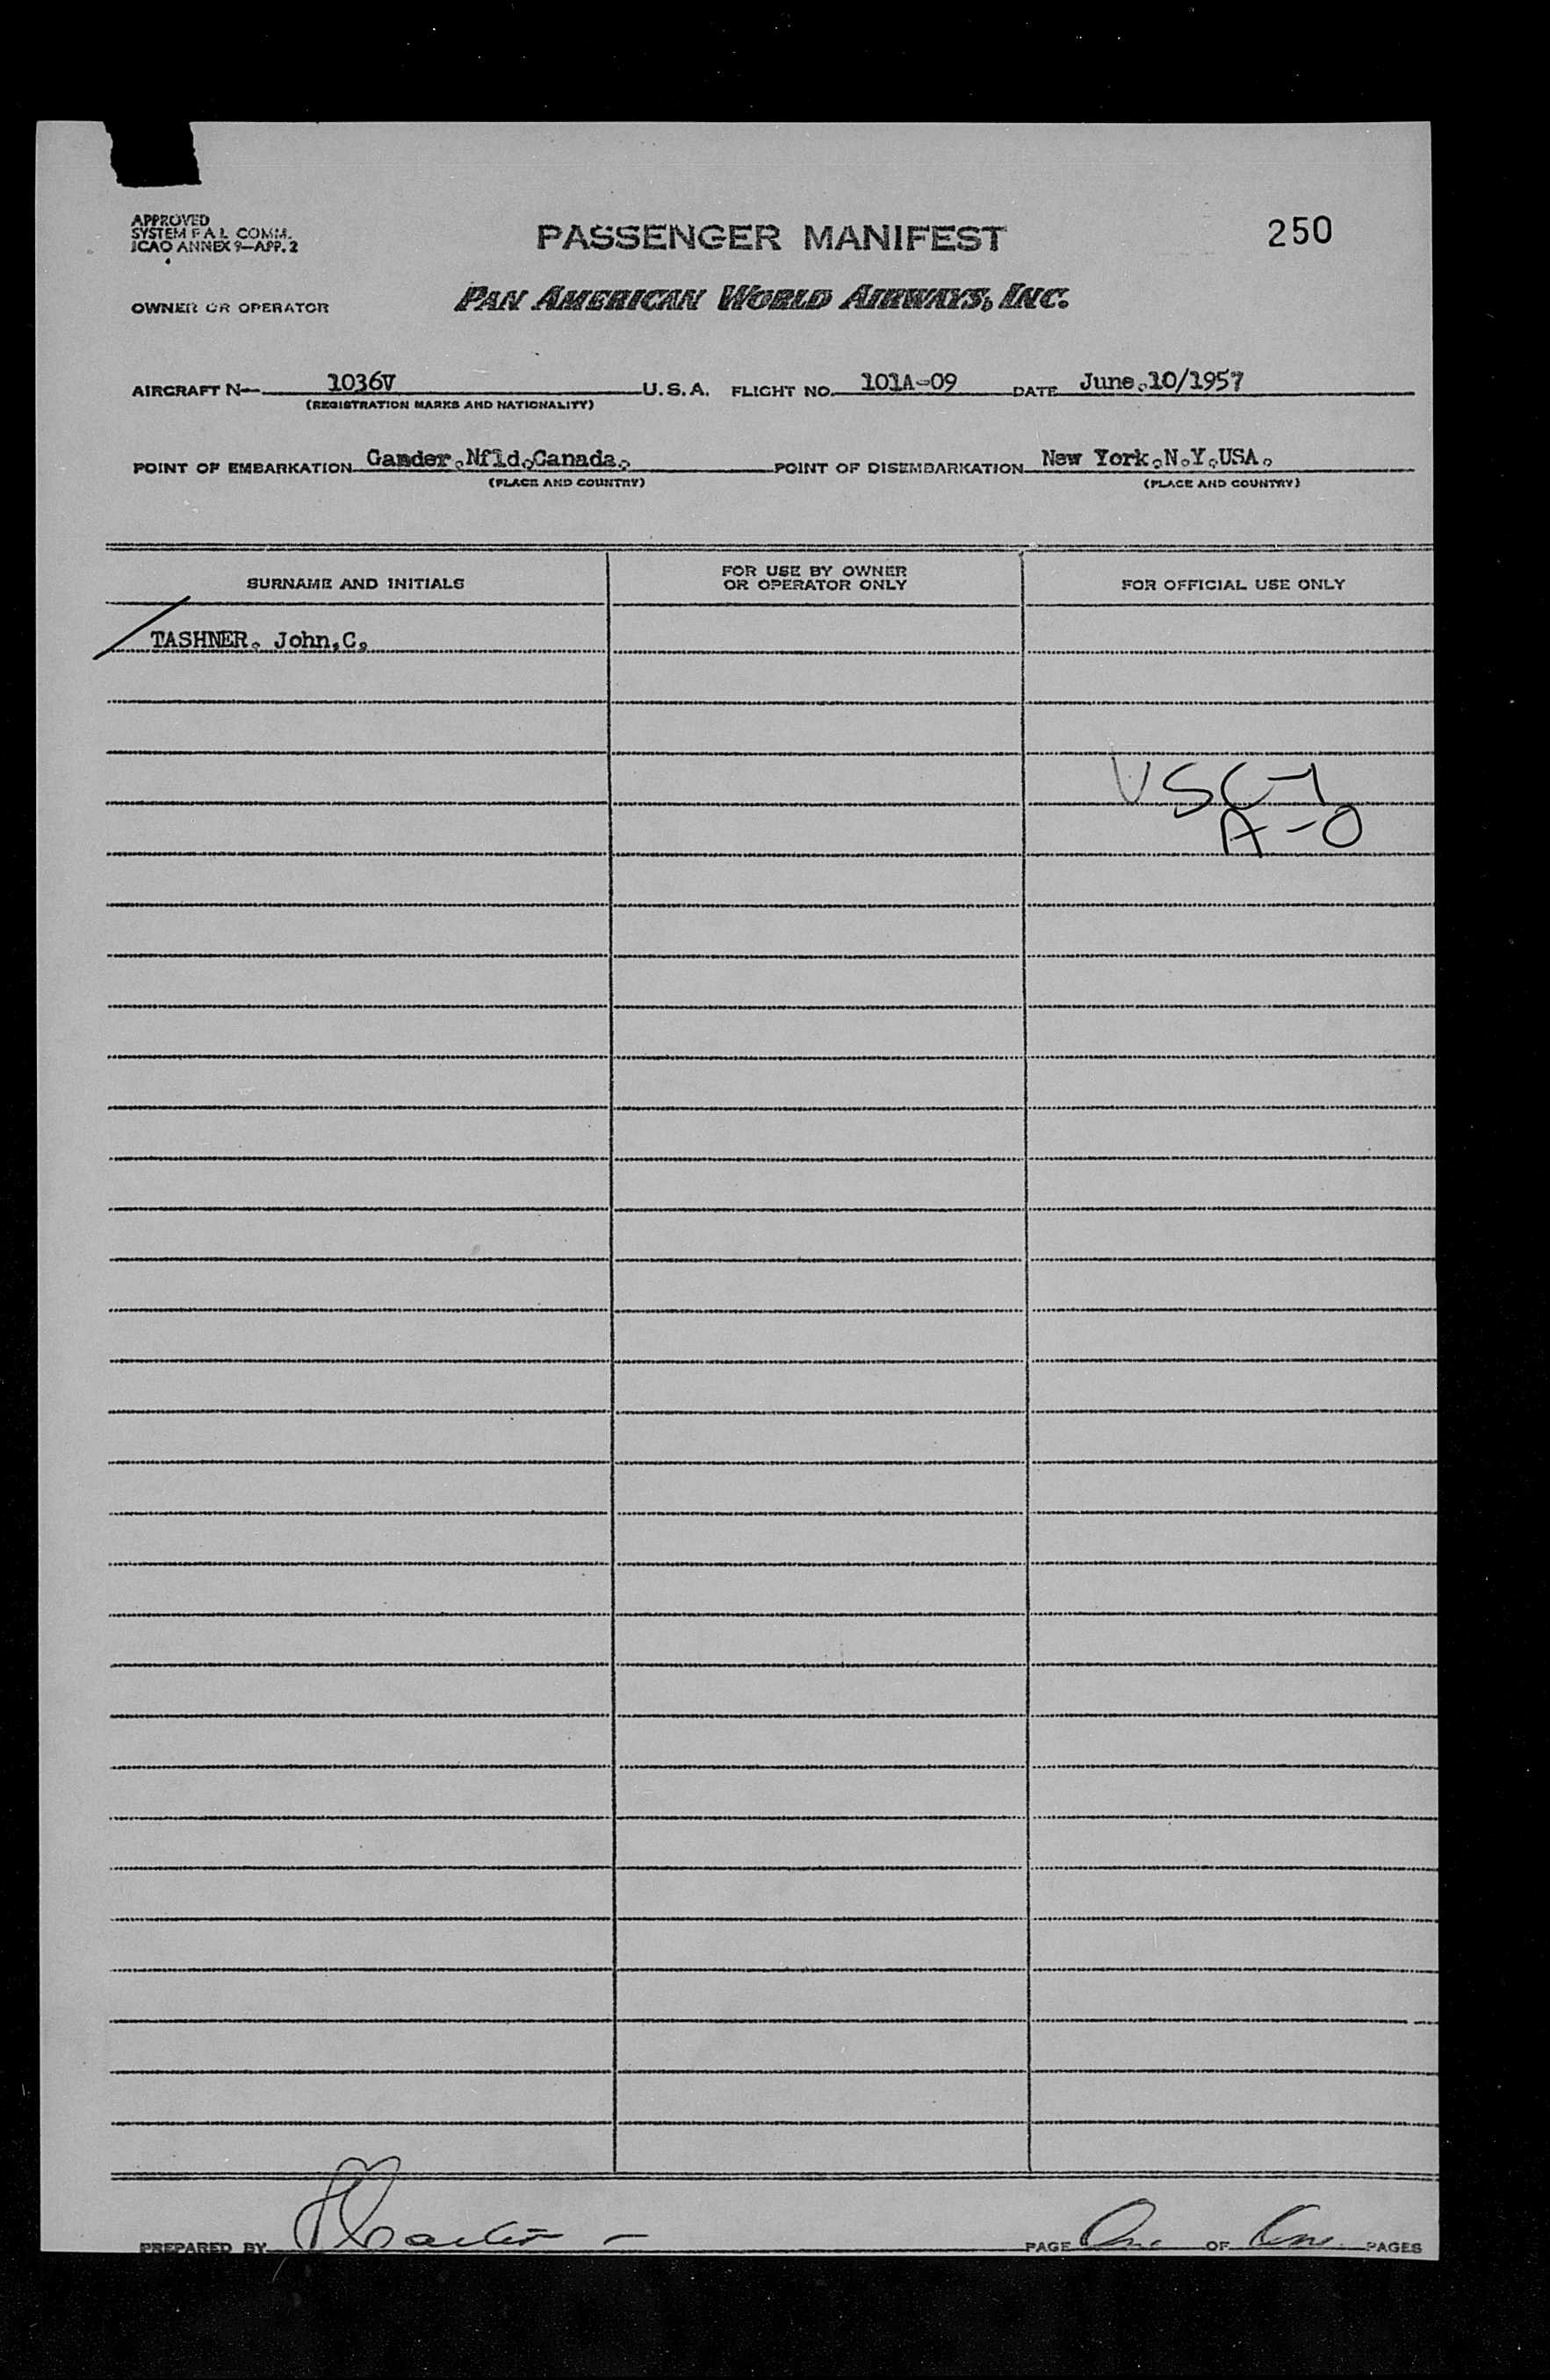 APPROVED
SYSTEM F A L COMM.
ICAO ANNEX 9—APP. 2
PASSENGER MANIFEST
250
OWNER OR OPERATOR
PAN AMERICAN WORLD AIRWAYS, INC.
AIRCRAFT N— 1036V U.S.A. FLIGHT NO. 101A-09 DATE June.10/1957
(REGISTRATION MARKS AND NATIONALITY)
POINT OF EMBARKATION Gander.Nfld.Canada. POINT OF DISEMBARKATION New York.N.Y.USA.
(PLACE AND COUNTRY) (PLACE AND COUNTRY)
SURNAME AND INITIALS
FOR USE BY OWNER
OR OPERATOR ONLY
FOR OFFICIAL USE ONLY
TASHNER. John.C.
USC-1
A-0
PREPARED BY PAGE One OF One PAGES